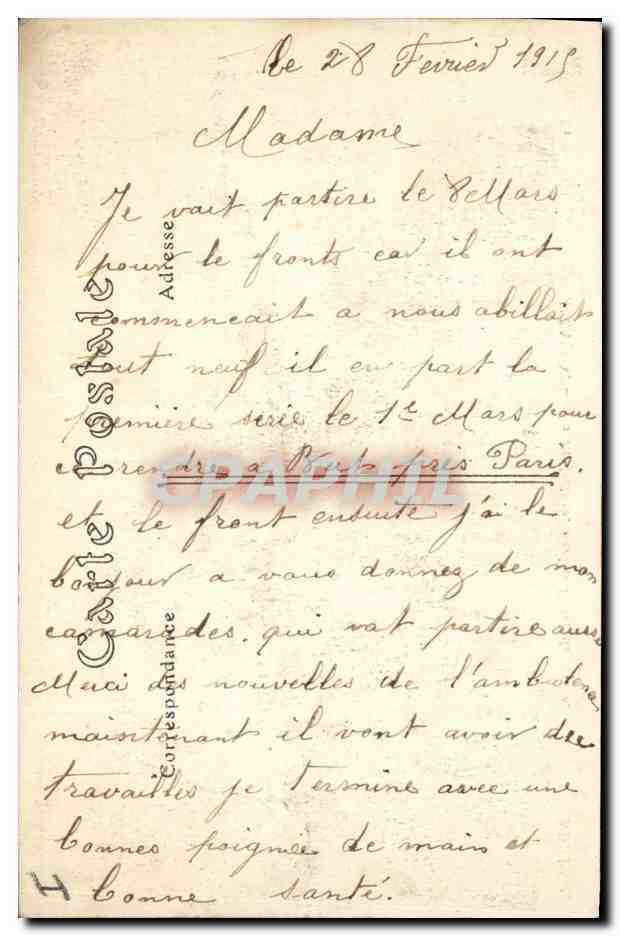 le 28 Fevrier 1915
Madame
Je vait partire le 8 Mars
pour le fronts car il ont
commencait a nous abillait
tout neuf il en part la
première serie le 1e Mars pour
rendre a près Paris.
et le front ensuite j'ai le
bonjour a vous donnez de mon
camarades. qui vat partire aussi
Merci des nouvelles de l'ambulance
maintenant il vont avoir des
travailles je termine avec une
bonnes poignée de main et
bonne santé.
H
Carte Postale
Adresse
Correspondance
CPAPHIL